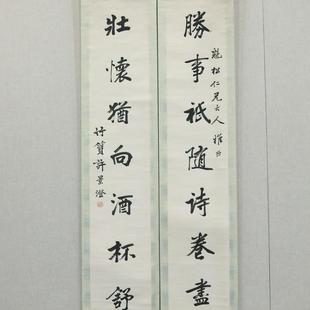 勝事祇隨詩卷盡
松仁兄大人雅
壯懷猶向酒杯舒
竹篔許景澄